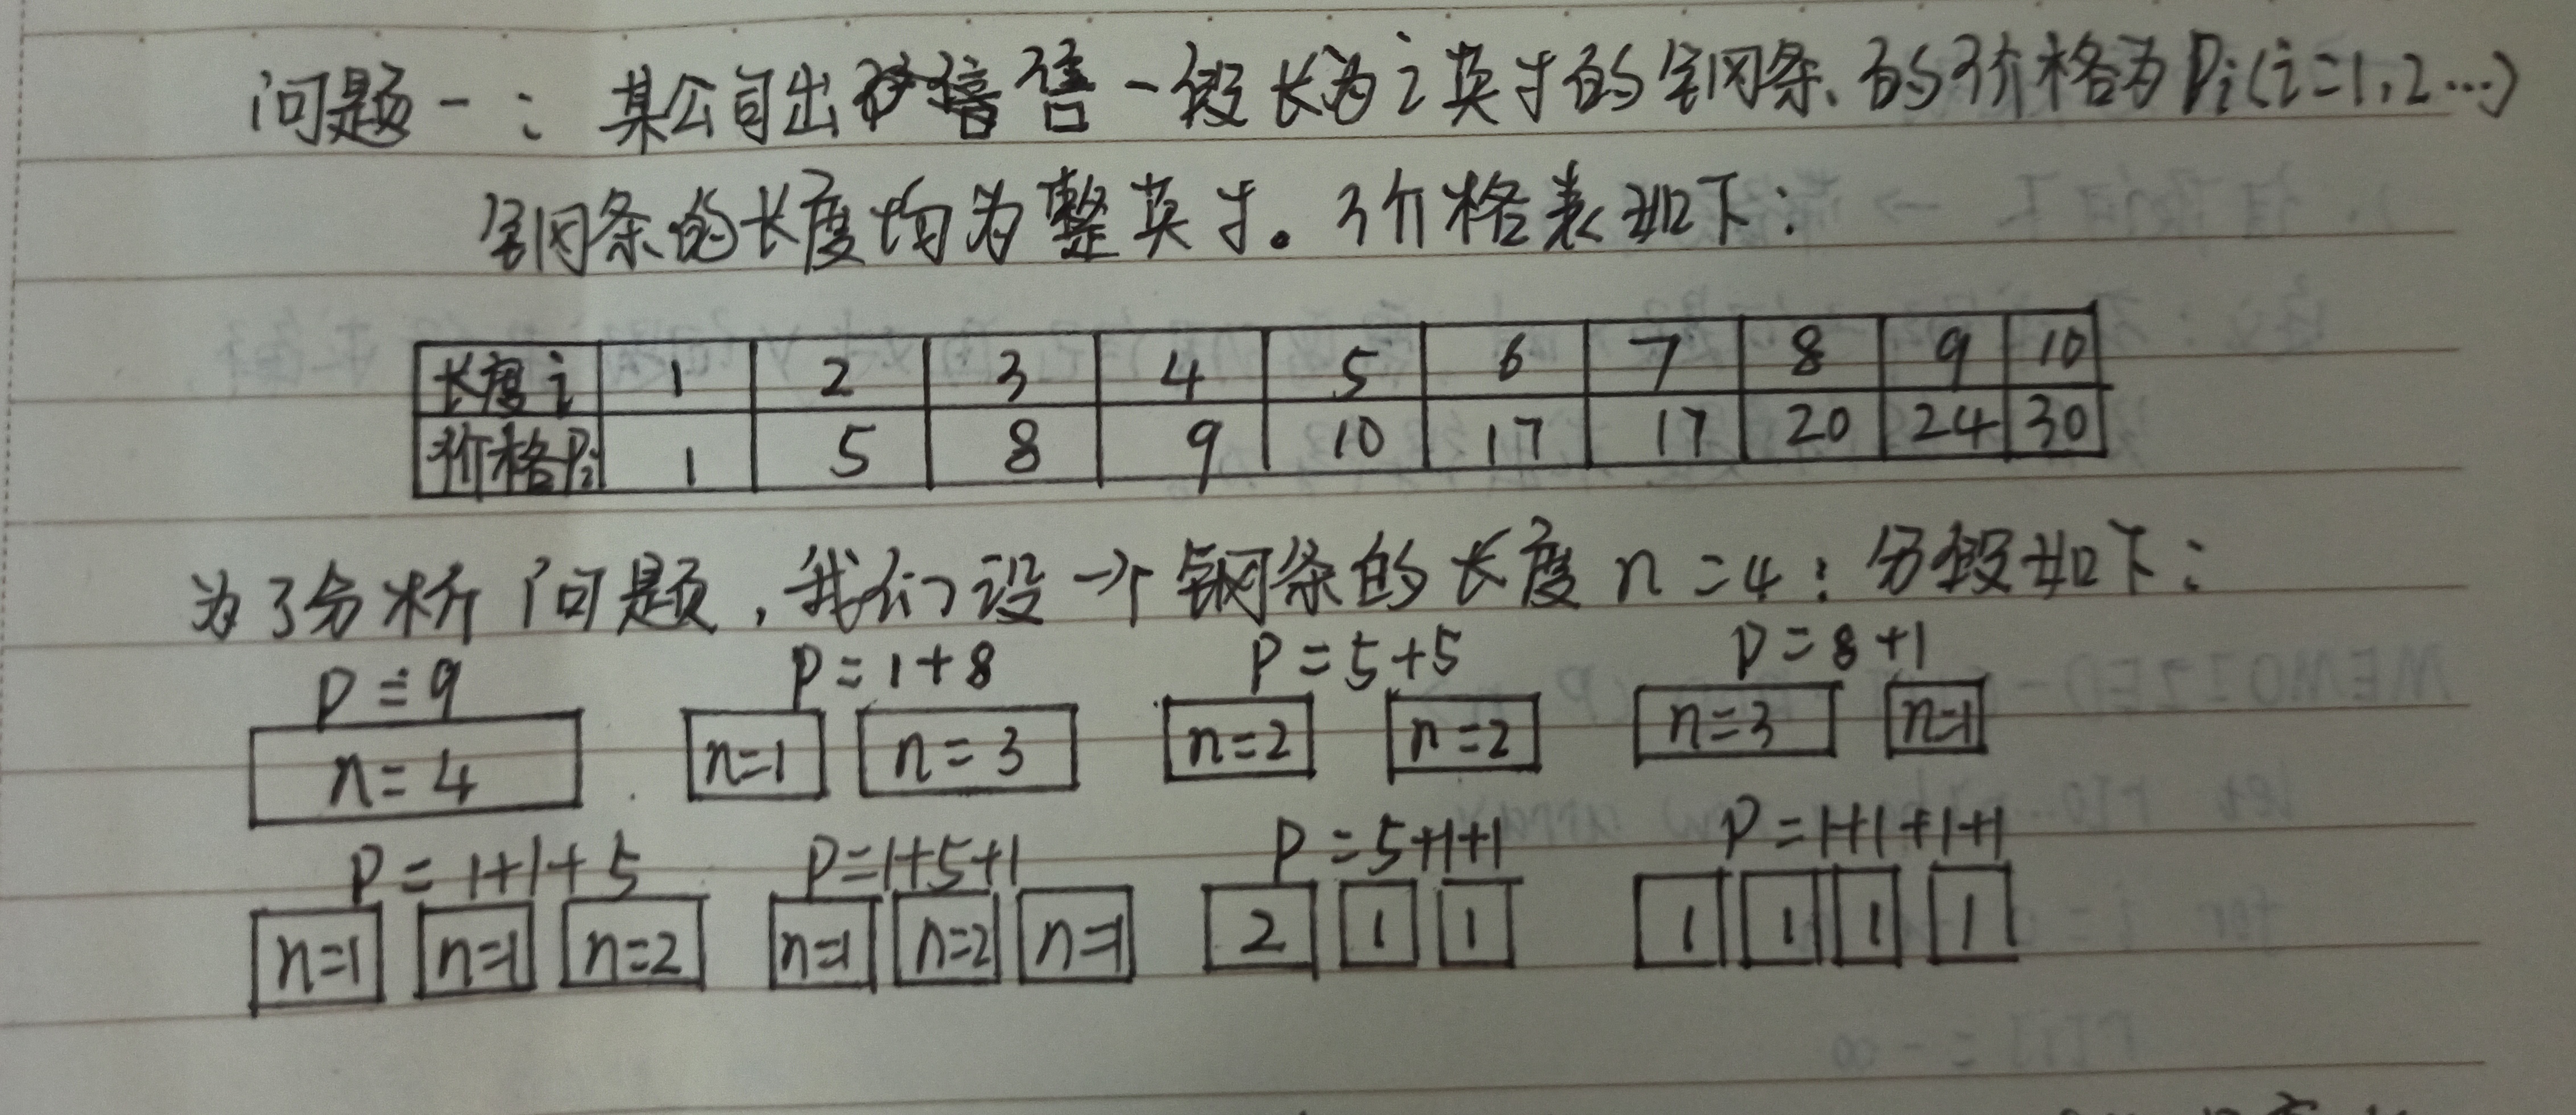 问题一：某公司出售一段长为i英寸的钢条的价格为Pi(i=1,2…)
钢条的长度均为整英寸。价格表如下：
长度i 1 2 3 4 5 6 7 8 9 10
价格Pi 1 5 8 9 10 17 17 20 24 30
为了分析问题，我们设一个钢条的长度n=4：分段如下：
P=9 P=1+8 P=5+5 P=8+1
n=4 n=1 n=3 n=2 n=2 n=3 n=1
P=1+1+5 P=1+5+1 P=5+1+1 P=1+1+1+1
n=1 n=1 n=2 n=1 n=2 n=1 2 1 1 1 1 1 1